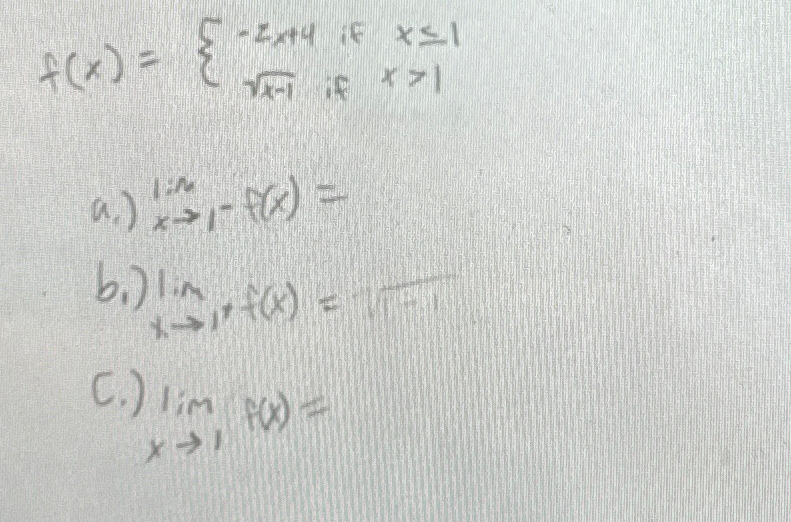 f(x) = { -2x+4 if x ≤ 1
√x-1 if x > 1
a.) lim x→1⁻ f(x) =
b.) lim x→1⁺ f(x) = √1-1
C.) lim x→1 f(x) =